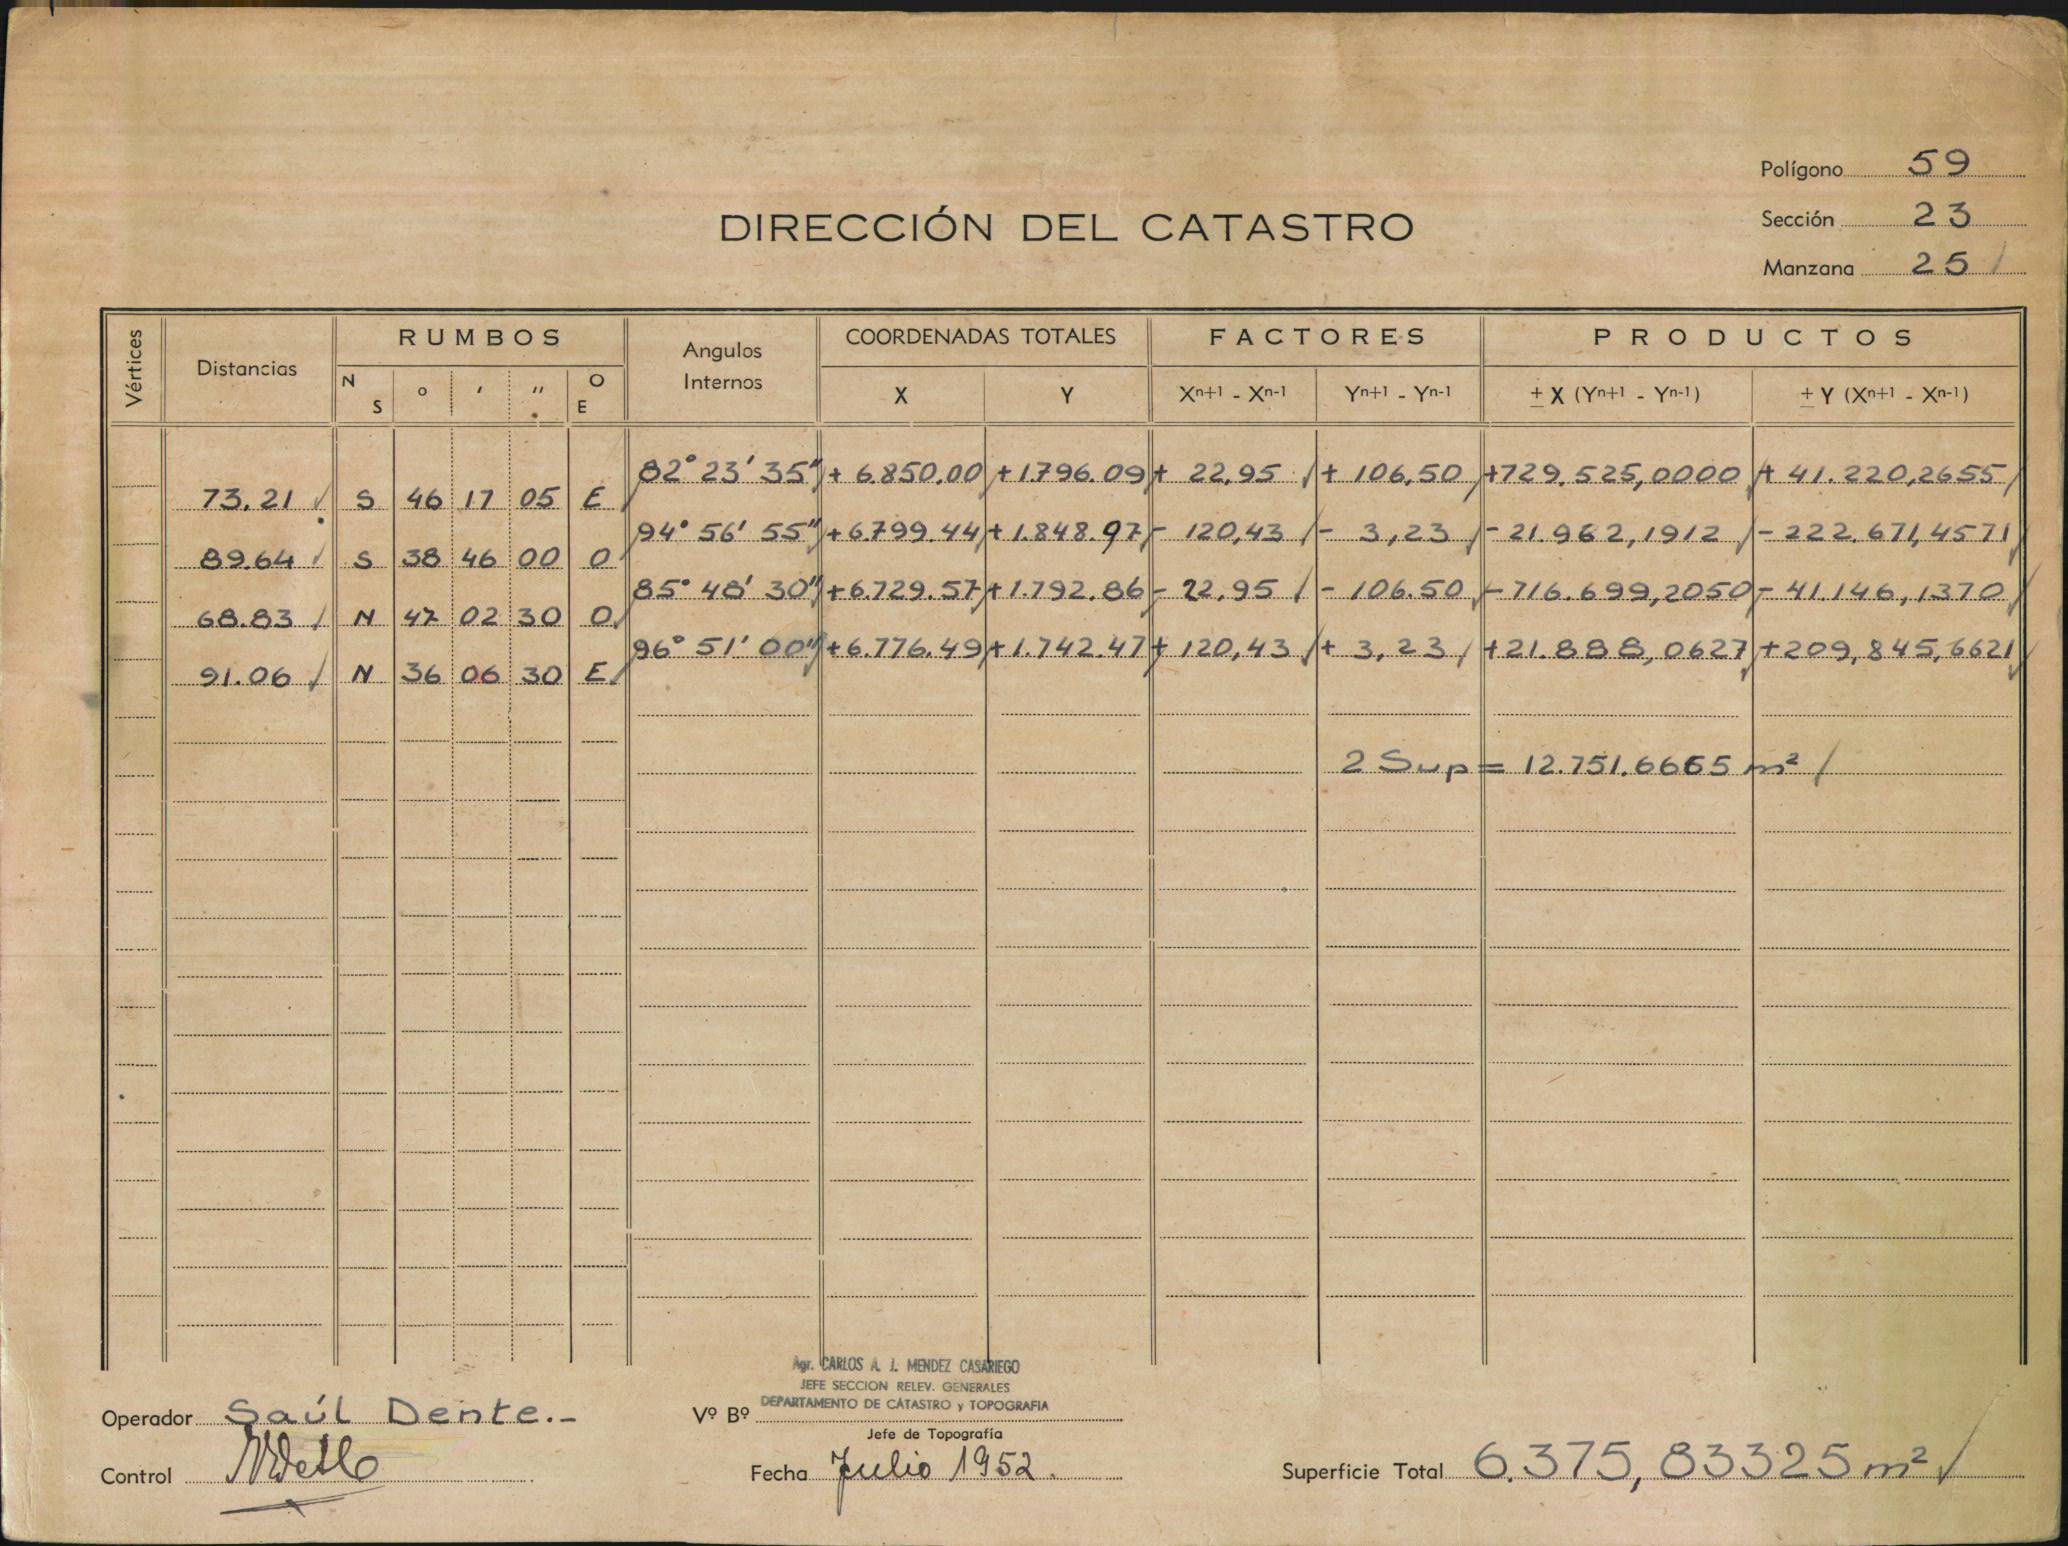 Polígono 59
Sección 23
Manzana 25
DIRECCIÓN DEL CATASTRO
Vértices Distancias RUMBOS Angulos Internos COORDENADAS TOTALES FACTORES PRODUCTOS
N S ° ′ ″ O E X Y Xn+1 - Xn-1 Yn+1 - Yn-1 ± X (Yn+1 - Yn-1) ± Y (Xn+1 - Xn-1)
82° 23' 35" + 6.850.00 + 1.796.09 + 22,95 + 106,50 + 729.525,0000 + 41.220,2655
73.21 S 46 17 05 E
94° 56' 55" + 6.799.44 + 1.848.97 - 120,43 - 3,23 - 21.962,1912 - 222.671,4571
89.64 S 38 46 00 O
85° 48' 30" + 6.729.57 + 1.792.86 - 22,95 - 106.50 - 716.699,2050 - 41.146,1370
68.83 N 47 02 30 O
96° 51' 00" + 6.776.49 + 1.742.47 + 120,43 + 3,23 + 21.888,0627 + 209,845,6621
91.06 N 36 06 30 E
2 Sup = 12.751.6665 m²
Agr. CARLOS A. J. MENDEZ CASARIEGO
JEFE SECCION RELEV. GENERALES
DEPARTAMENTO DE CATASTRO y TOPOGRAFIA
Operador Saúl Dente.-
Vº Bº
Jefe de Topografía
Control
Fecha Julio 1952.
Superficie Total 6.375,83325 m²